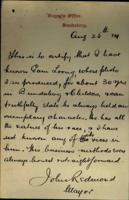 Mayor's Office.
Bundaberg,
Aug 25th 19
This is to certify that I have
known Lum Loong, whose photo
is produced, for about 30 years
in Bundaberg & Childers, & can
truthfully state he always held an
exemplary character. He has all
the virtues of his race, & I have
not known any of its vices in
him. His business methods was
always honest & straightforward
John Redmond
Mayor